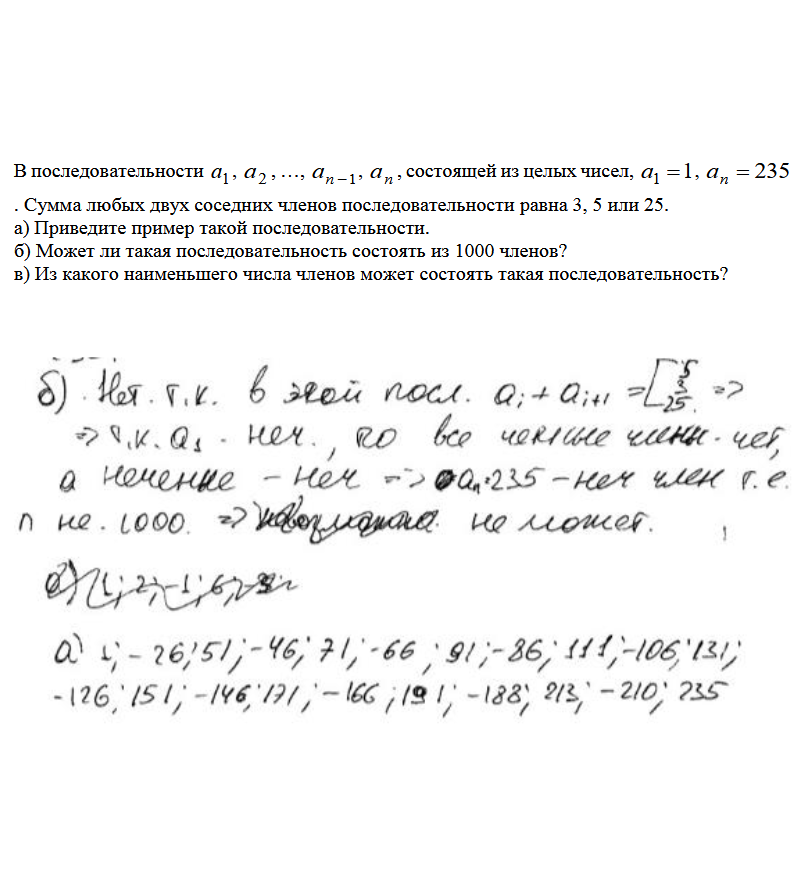 В последовательности a₁, a₂, ..., aₙ₋₁, aₙ, состоящей из целых чисел, a₁ = 1, aₙ = 235
. Сумма любых двух соседних членов последовательности равна 3, 5 или 25.
а) Приведите пример такой последовательности.
б) Может ли такая последовательность состоять из 1000 членов?
в) Из какого наименьшего числа членов может состоять такая последовательность?
б). Нет. т.к. в этой посл. aᵢ + aᵢ₊₁ = [5 3 25. =>
=> т.к. a₁ - неч., то все четные члены - чет,
а нечетные - неч => aₙ=235 - неч член т.е.
n не. 1000. => не может.
а) 1; -26; 51; -46; 71; -66; 91; -86; 111; -106; 131;
-126; 151; -146; 171; -166; 191; -188; 213; -210; 235